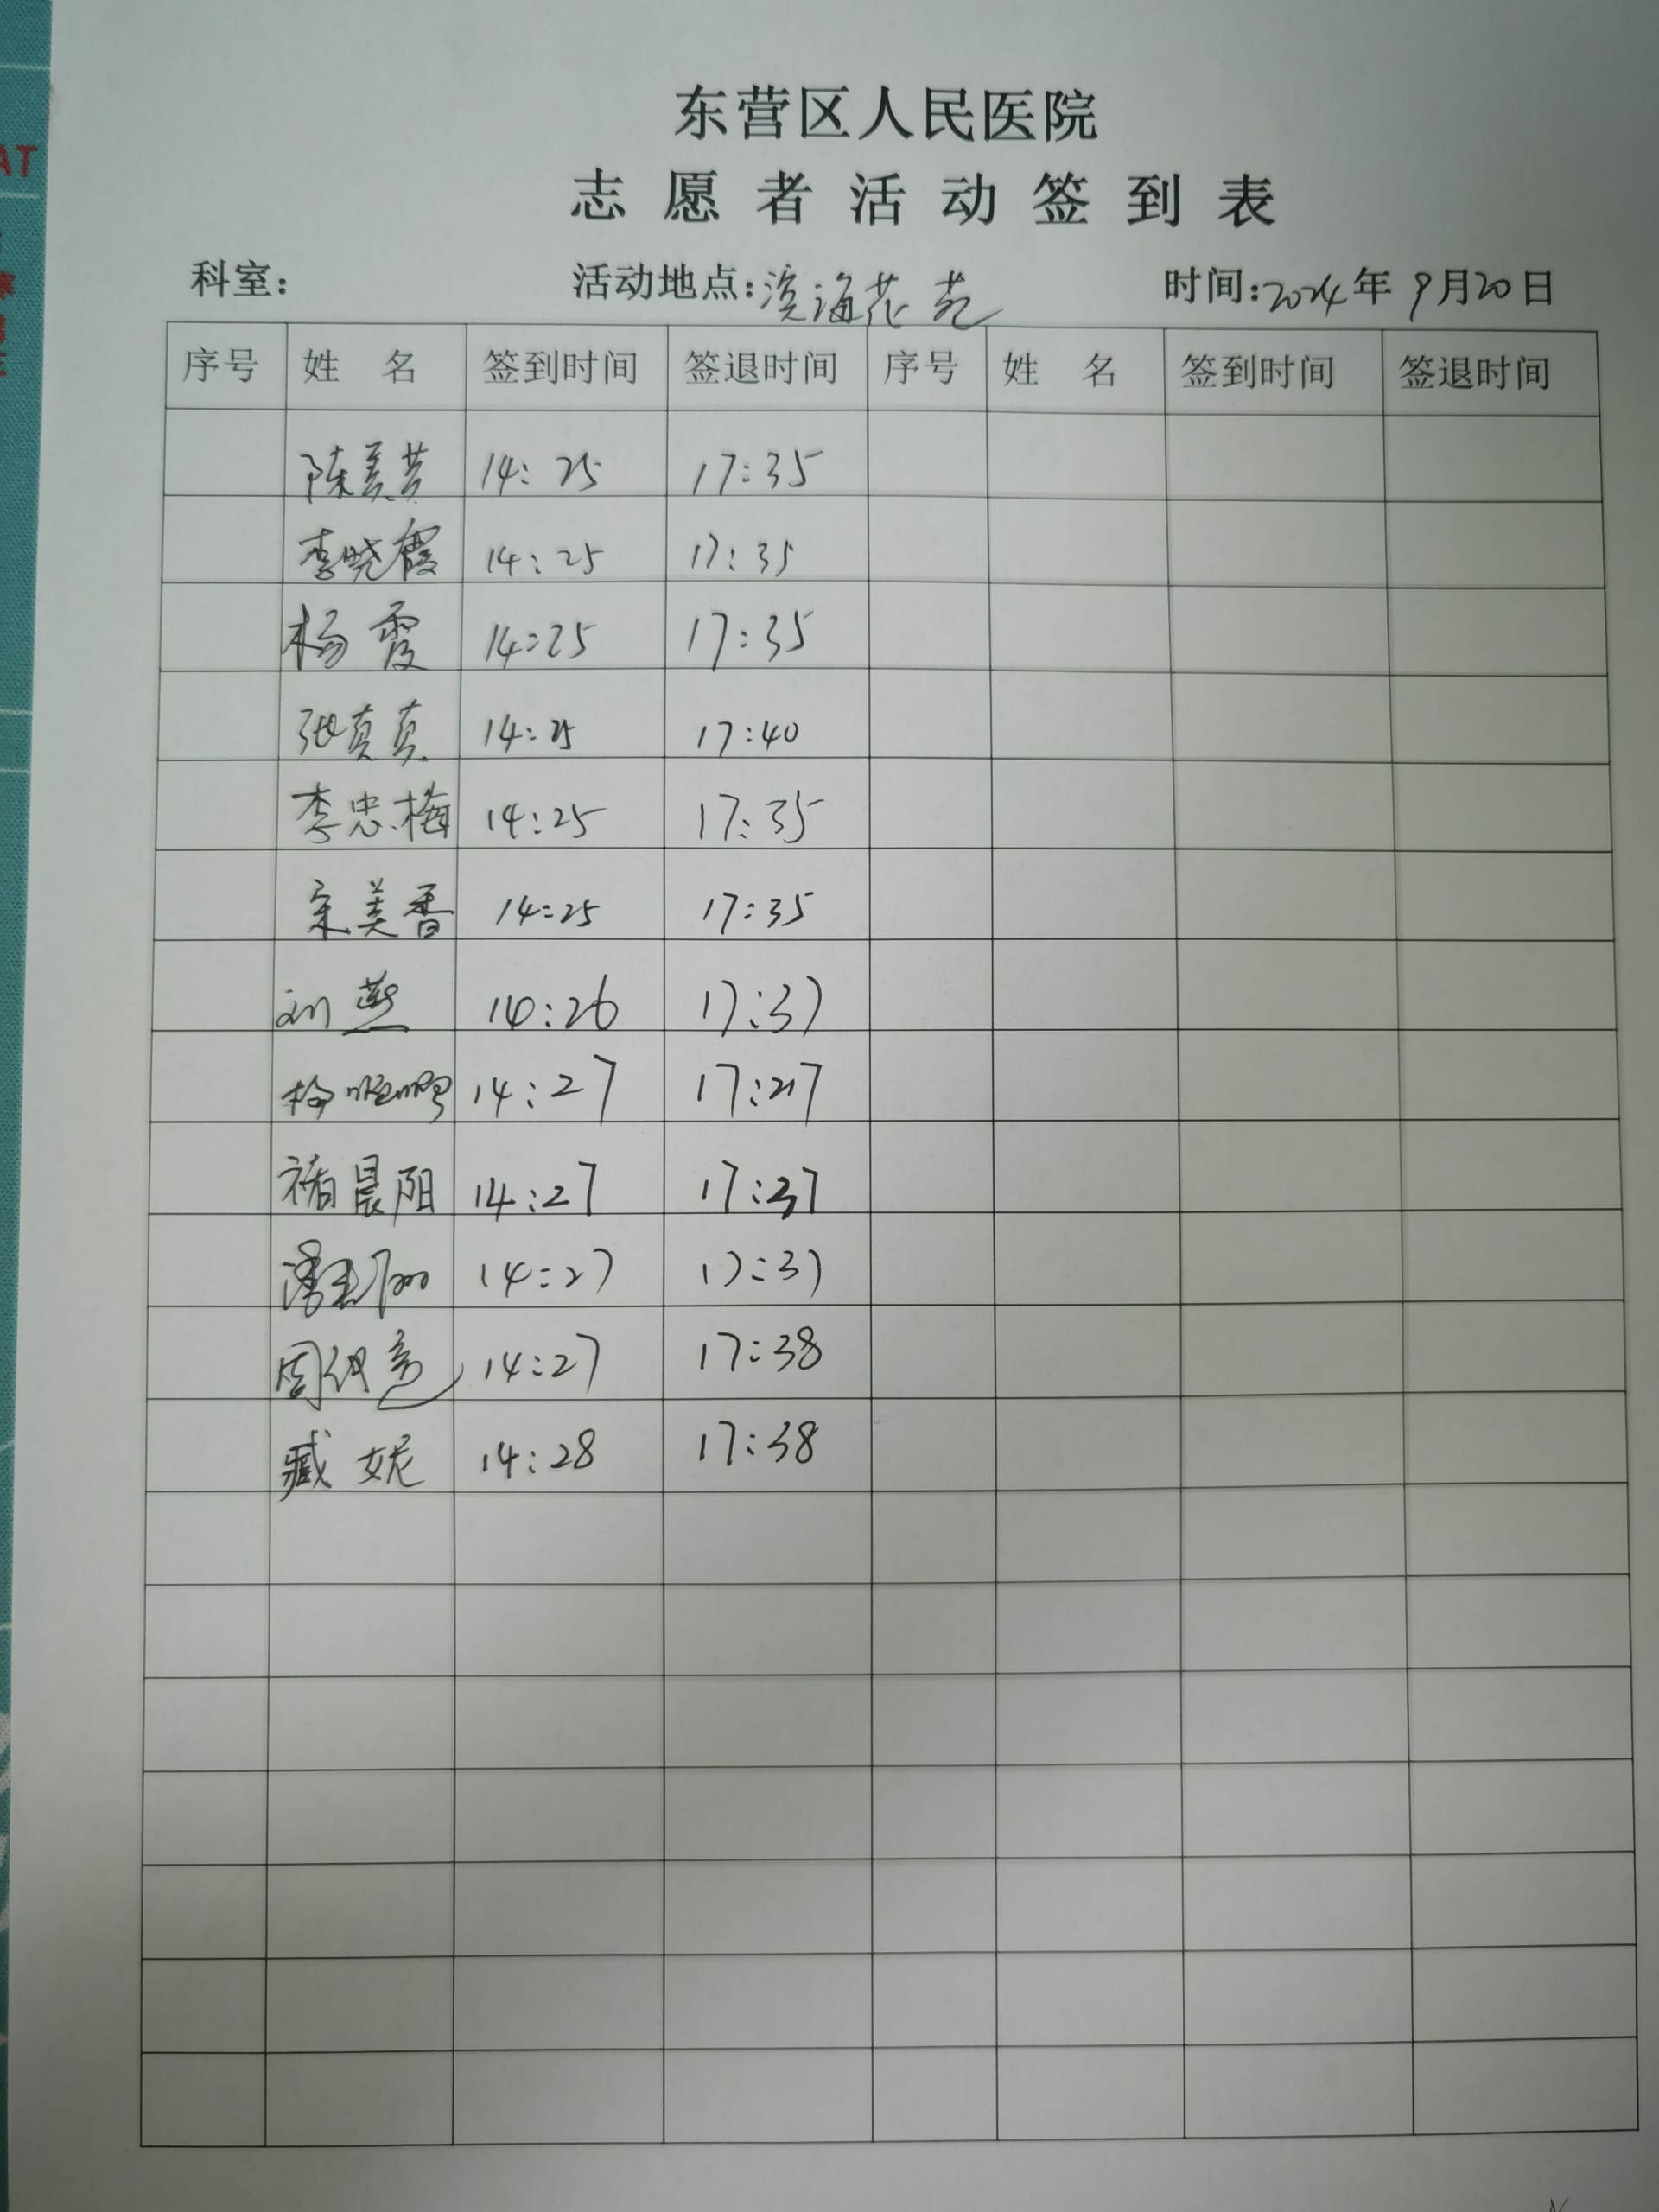 东营区人民医院
志愿者活动签到表
科室: 活动地点:滨海花苑 时间:2024年9月20日
序号 姓 名 签到时间 签退时间 序号 姓 名 签到时间 签退时间
陈美芸 14:25 17:35
李晓霞 14:25 17:35
杨霞 14:25 17:35
张真真 14:25 17:40
李忠梅 14:25 17:35
宋美香 14:25 17:35
刘燕 14:26 17:37
14:27 17:27
褚晨阳 14:27 17:37
潘 14:27 17:37
周 14:27 17:38
臧妮 14:28 17:38
AT